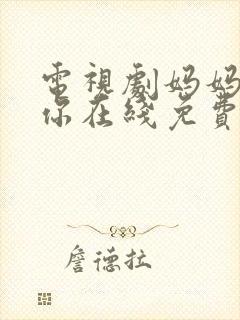 電視劇妈妈
你在綫免費
詹德拉